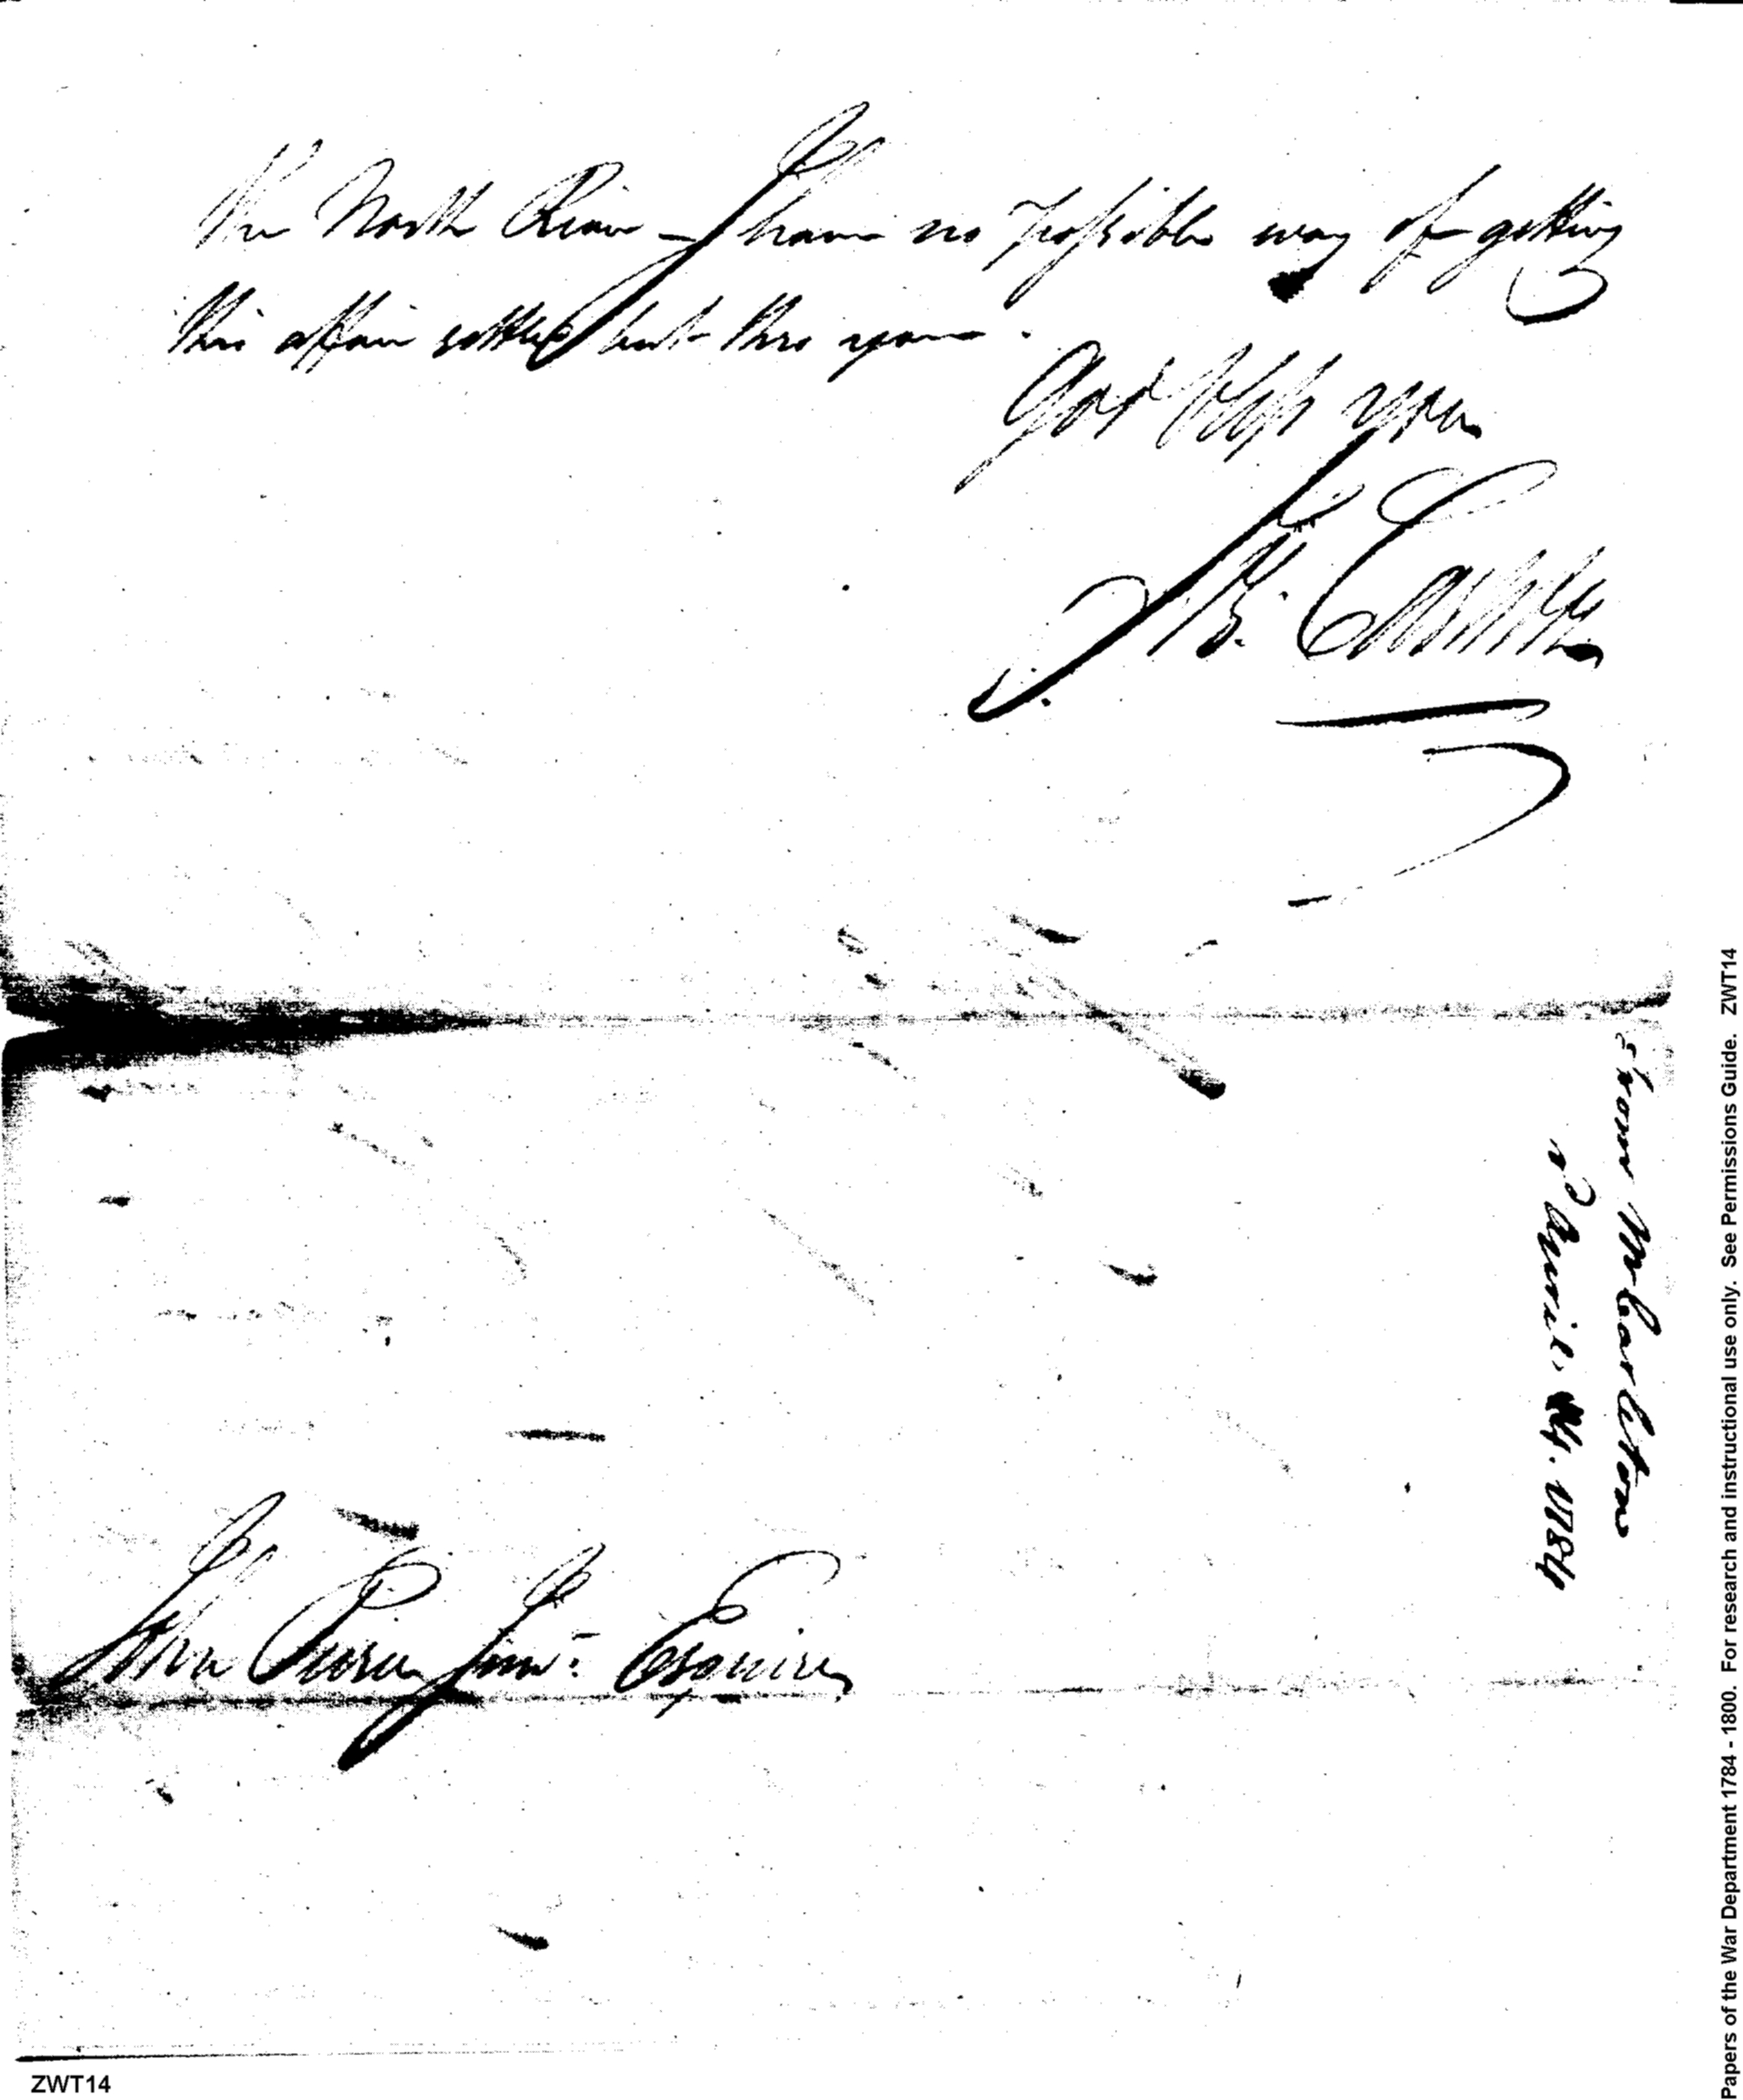 the North River - I have no possible way of getting
this affair settled but thro you.
God bless you
J. Carleton
from Mr Carleton
2d April. 1784
John Pierce Junr. Esquire
ZWT14
Papers of the War Department 1784 - 1800. For research and instructional use only. See Permissions Guide. ZWT14